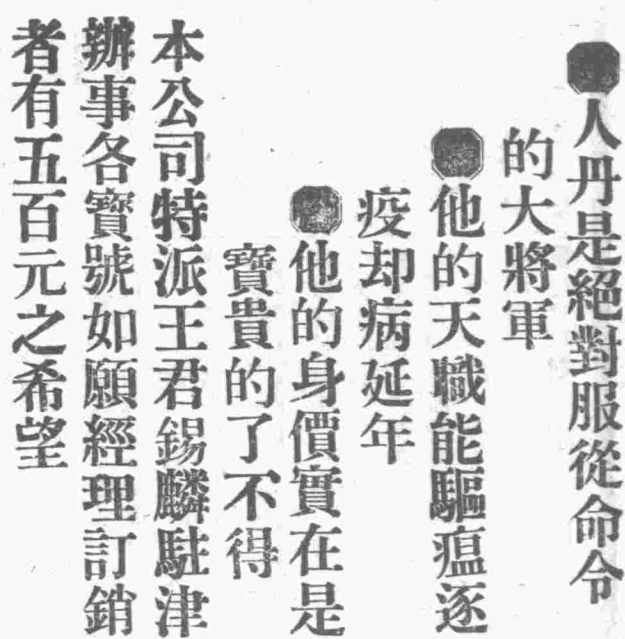 人丹是絕對服從命令
的大將軍
他的天職能驅瘟逐
疫却病延年
他的身價實在是
寶貴的了不得
本公司特派王君錫麟駐津
辦事各寶號如願經理訂銷
者有五百元之希望